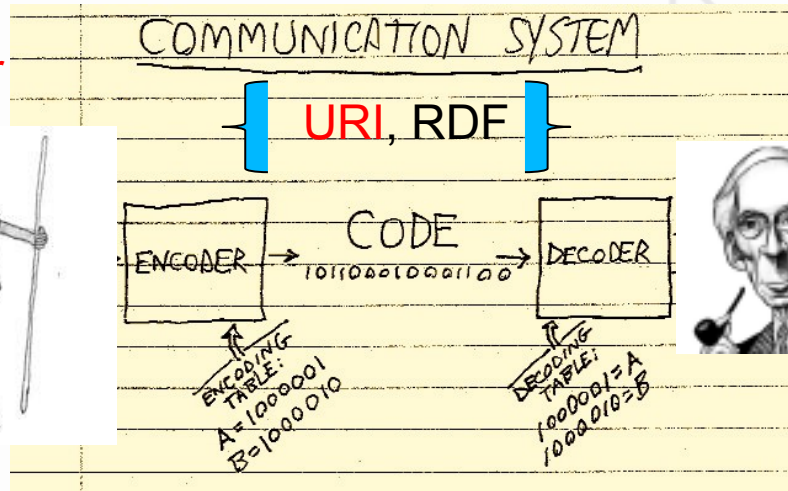 COMMUNICATION SYSTEM
URI, RDF
ENCODER
CODE
101100010001100
DECODER
ENCODING
TABLE:
A=1000001
B=1000010
DECODING
TABLE:
1000001=A
1000010=B